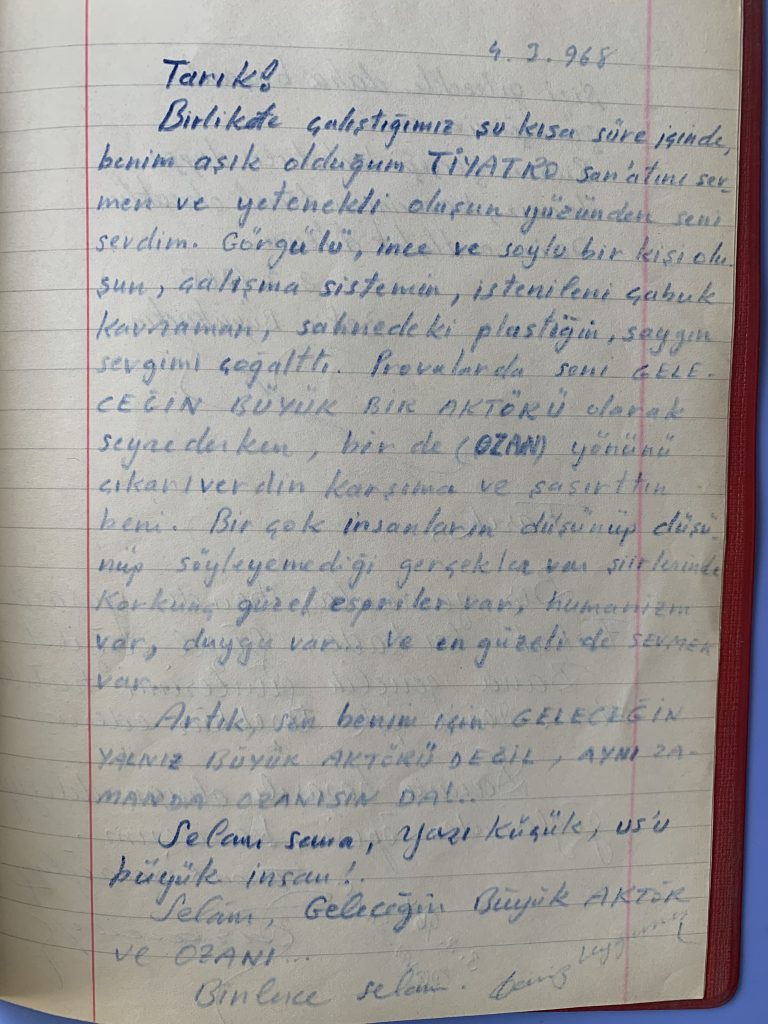 4.3.968
Tarık!
Birlikte çalıştığımız şu kısa süre içinde,
benim aşık olduğum TİYATRO san'atını sev-
men ve yetenekli oluşun yüzünden seni
sevdim. Görgülü, ince ve soylu bir kişi olu-
şun, çalışma sistemin, istenileni çabuk
kavraman, sahnedeki plastiğin, saygın
sevgimi çoğalttı. Provalarda seni GELE-
CEĞİN BÜYÜK BİR AKTÖRÜ olarak
seyrederken, bir de (OZAN) yönünü
çıkarıverdin karşıma ve şaşırttın
beni. Birçok insanların düşünüp düşü-
nüp söyleyemediği gerçekler var şiirlerinde
Korkunç güzel espriler var, humanizm
var, duygu var... ve en güzeli de SEVMEK
var.
Artık, sen benim için GELECEĞİN
YALNIZ BÜYÜK AKTÖRÜ DEĞİL, AYNI ZA-
MANDA OZANISIN DA!..
Selam sana, yazı küçük, us'u
büyük insan!.
Selâm, Geleceğin Büyük AKTÖR
ve OZANI...
Binlerce selam.